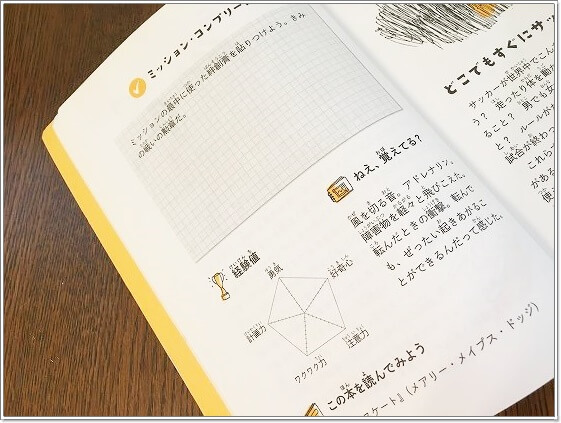 ミッション・コンプリート
ミッションの最中に使った絆創膏を貼りつけよう。きみ
の戦いの勲章だ。
ねえ、覚えてる?
風を切る音。アドレナリン。
障害物を軽々と飛びこえた。
転んだときの衝撃。転んで
も、ぜったい起きあがるこ
とができるんだって感じた。
経験値
勇気
好奇心
計画力
注意力
ワクワク力
この本を読んでみよう
スケート』(メアリー・メイプス・ドッジ)
どこでもすぐにサッ
サッカーが世界中でこん
う? 走ったり体を動か
ること? 男でも女
と? ルールが
試合が終わっ
これら
がある
使